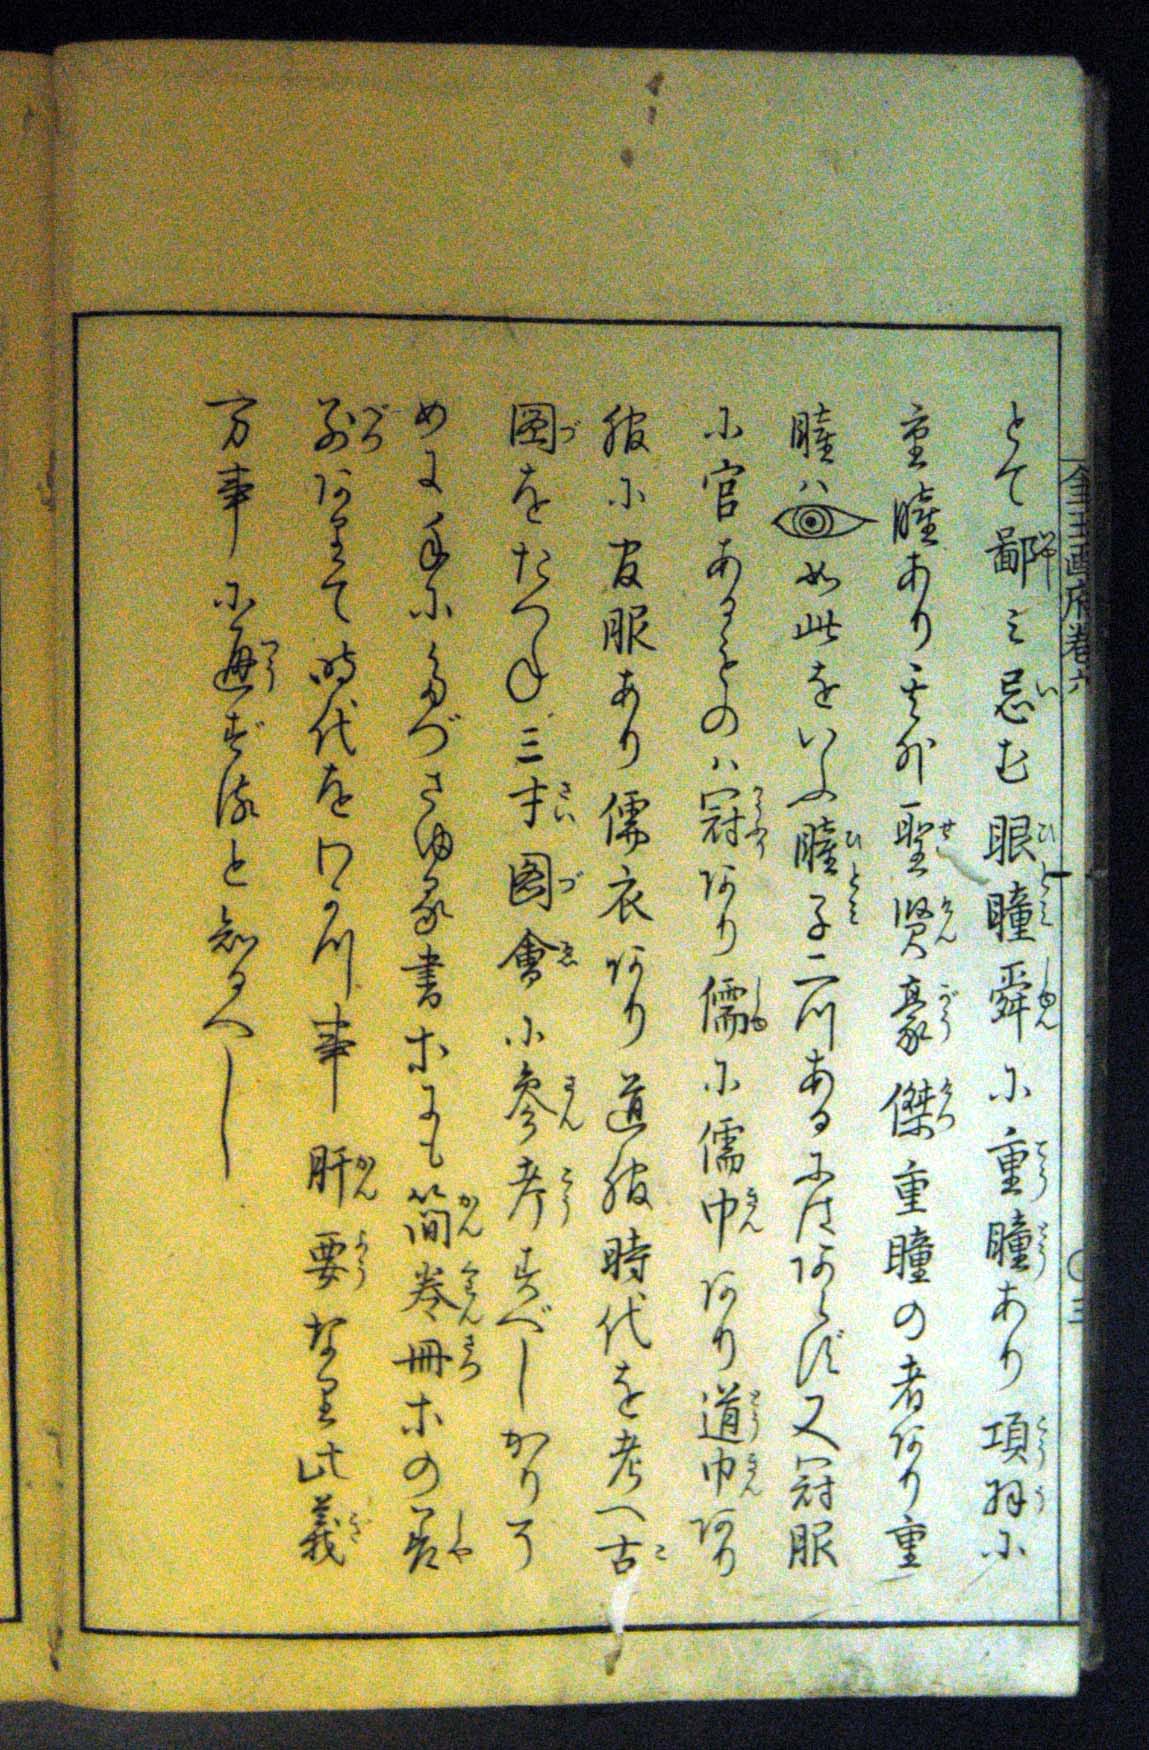 とて鄙ミ忌む眼瞳舜に重瞳あり項羽に
重瞳あり其外聖賢豪傑重瞳の者あり重
瞳ハ如此をいふ瞳子二つあるにはあらず又冠服
に官あるものハ冠あり儒に儒巾あり道巾あり
服に官服あり儒衣あり道服時代を考へ古
図をたづね三才図會に参考すべしかりそ
めに手にたづさゆる書ホにも簡巻冊ホの差
別ありて時代をわかつ事肝要なり此義
万事に通ずると知るべし
画府巻六
三